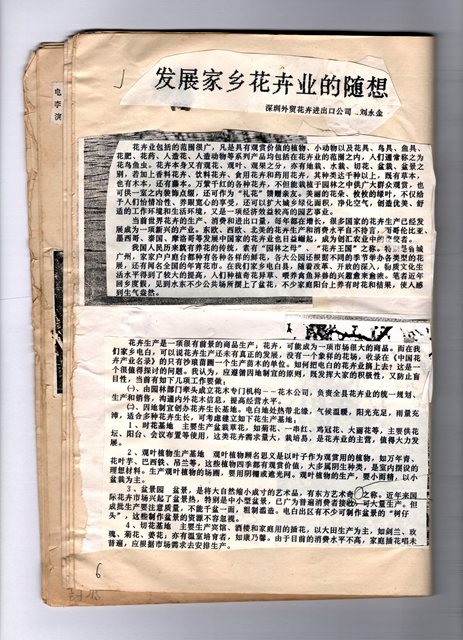 电李演
发展家乡花卉业的随想
深圳外贸花卉进出口公司 刘永金
花卉业包括的范围很广,凡是具有观赏价值的植物、小动物以及花具、鸟具、鱼具、
花肥、花药、人造花、人造动物等系列产品均包括在花卉业的范围之内,人们通常称之为
花鸟鱼虫。花卉本身又有观花、观叶、观果之分,亦有地栽、水栽、切花、盆栽、盆景之
别,若加上香料花卉、饮料花卉、食用花卉和药用花卉,其种类达千种以上,既有草本,
也有木本,还有藤本。万紫千红的各种花卉,不但能栽植于园林之中供广大群众观赏,也
可供一室之内装饰点缀,还可作为“礼花”馈赠亲友。美丽的花朵、枝枝的绿叶,不仅给
予人们怡情冶性、养眼宽心的享受,还可以扩大城乡绿化面积,净化空气,创造优美、舒
适的工作环境和生活环境,又是一项经济效益较高的园艺事业。
当前世界花卉的生产、消费和进出口量,每年都在增长,很多国家的花卉生产已经发
展成为一项新兴的产业。东欧、西欧、北美的花卉生产和消费水平自不待言,而哥伦比亚、
墨西哥、泰国、摩洛哥等发展中国家的花卉业也日益崛起,成为创汇农业中的
我国人民历来就有养花的传统,素有“园林之母”、“花卉王国”之称。特别是羊城
广州,家家户户庭台都种有各种各样的鲜花,各大公园还根据不同的季节举办各类型的花
展,还有闻名全国的年宵花市。在我们家乡电白县,随着改革、开放的深入,物质文化生
活水平得到了较大的提高,人们种植奇花异草、喂养禽鱼异兽的兴趣愈来愈浓。笔者近年
回乡度假,见到水东不少公共场所摆上了盆花,不少家庭阳台上养有时花和结果,使人感
到生气盎然。
花卉生产是一项很有前景的商品生产,花卉,可能成为一项市场很大的商品。而在我
们家乡电白,可以说花卉生产还未有真正的发展,没有一个象样的花场,收录在《中国花
卉产业名录》的只有沙琅苗圃一个生产苗木的单位。如何把电白的花卉业搞上去?这是一
个很值得探讨的问题。我认为,应遵循因地制宜的原则,既发挥大家的积极性,又防止盲
目性,当前有如下几项工作要做:
㈠、由园林部门牵头成立花木专门机构——花木公司,负责全县花卉业的统一规划、
生产和销售,沟通内外花木信息,提高经营水平。
㈡、因地制宜创办花卉生长基地。电白地处热带北缘,气候温暖,阳光充足,雨量充
沛,适合多种花卉生长,可考虑建立如下花卉生产基地。
1、时花基地 主要生产盆栽草花,如菊花、一串红、鸡冠花、大丽花等,主要供花
坛、阳台、会议布置等使用,这类花卉需求量大,栽培易,是花卉业的主营,值得大力发
展。
2、观叶植物生产基地 观叶植物顾名思义是以叶子作为观赏用的植物,如万年青、
花叶芋、巴西铁、吊兰等,这些植物四季都有观赏价值,大多属阴生种类,是室内摆设的
理想材料。生产观叶植物的场圃,要用阴棚或遮光网。观叶植物的生产,要小而精,以小
盆栽为主。
3、盆景园 盆景,是将大自然缩小成寸的艺术品,有东方艺术奇 之称。近年来国
际花卉市场兴起了盆景热,特别是中小型盆景,已广为普通消费者接收,可大量生产。但
成批生产要注意质量,不能千盆一面,粗制滥造。电白出区有不少可制作盆景的“树仔
头”,这些制作盆景的资源不容忽视。
4、切花基地 主要生产宾馆、酒楼和家庭用的插花,以大田生产为主,如剑兰、玫
瑰、菊花、姜花,亦有温室培育者,如康乃馨。由于目前的消费水平不高,家庭插花唱未
普遍,应根据市场需求去安排生产。
6